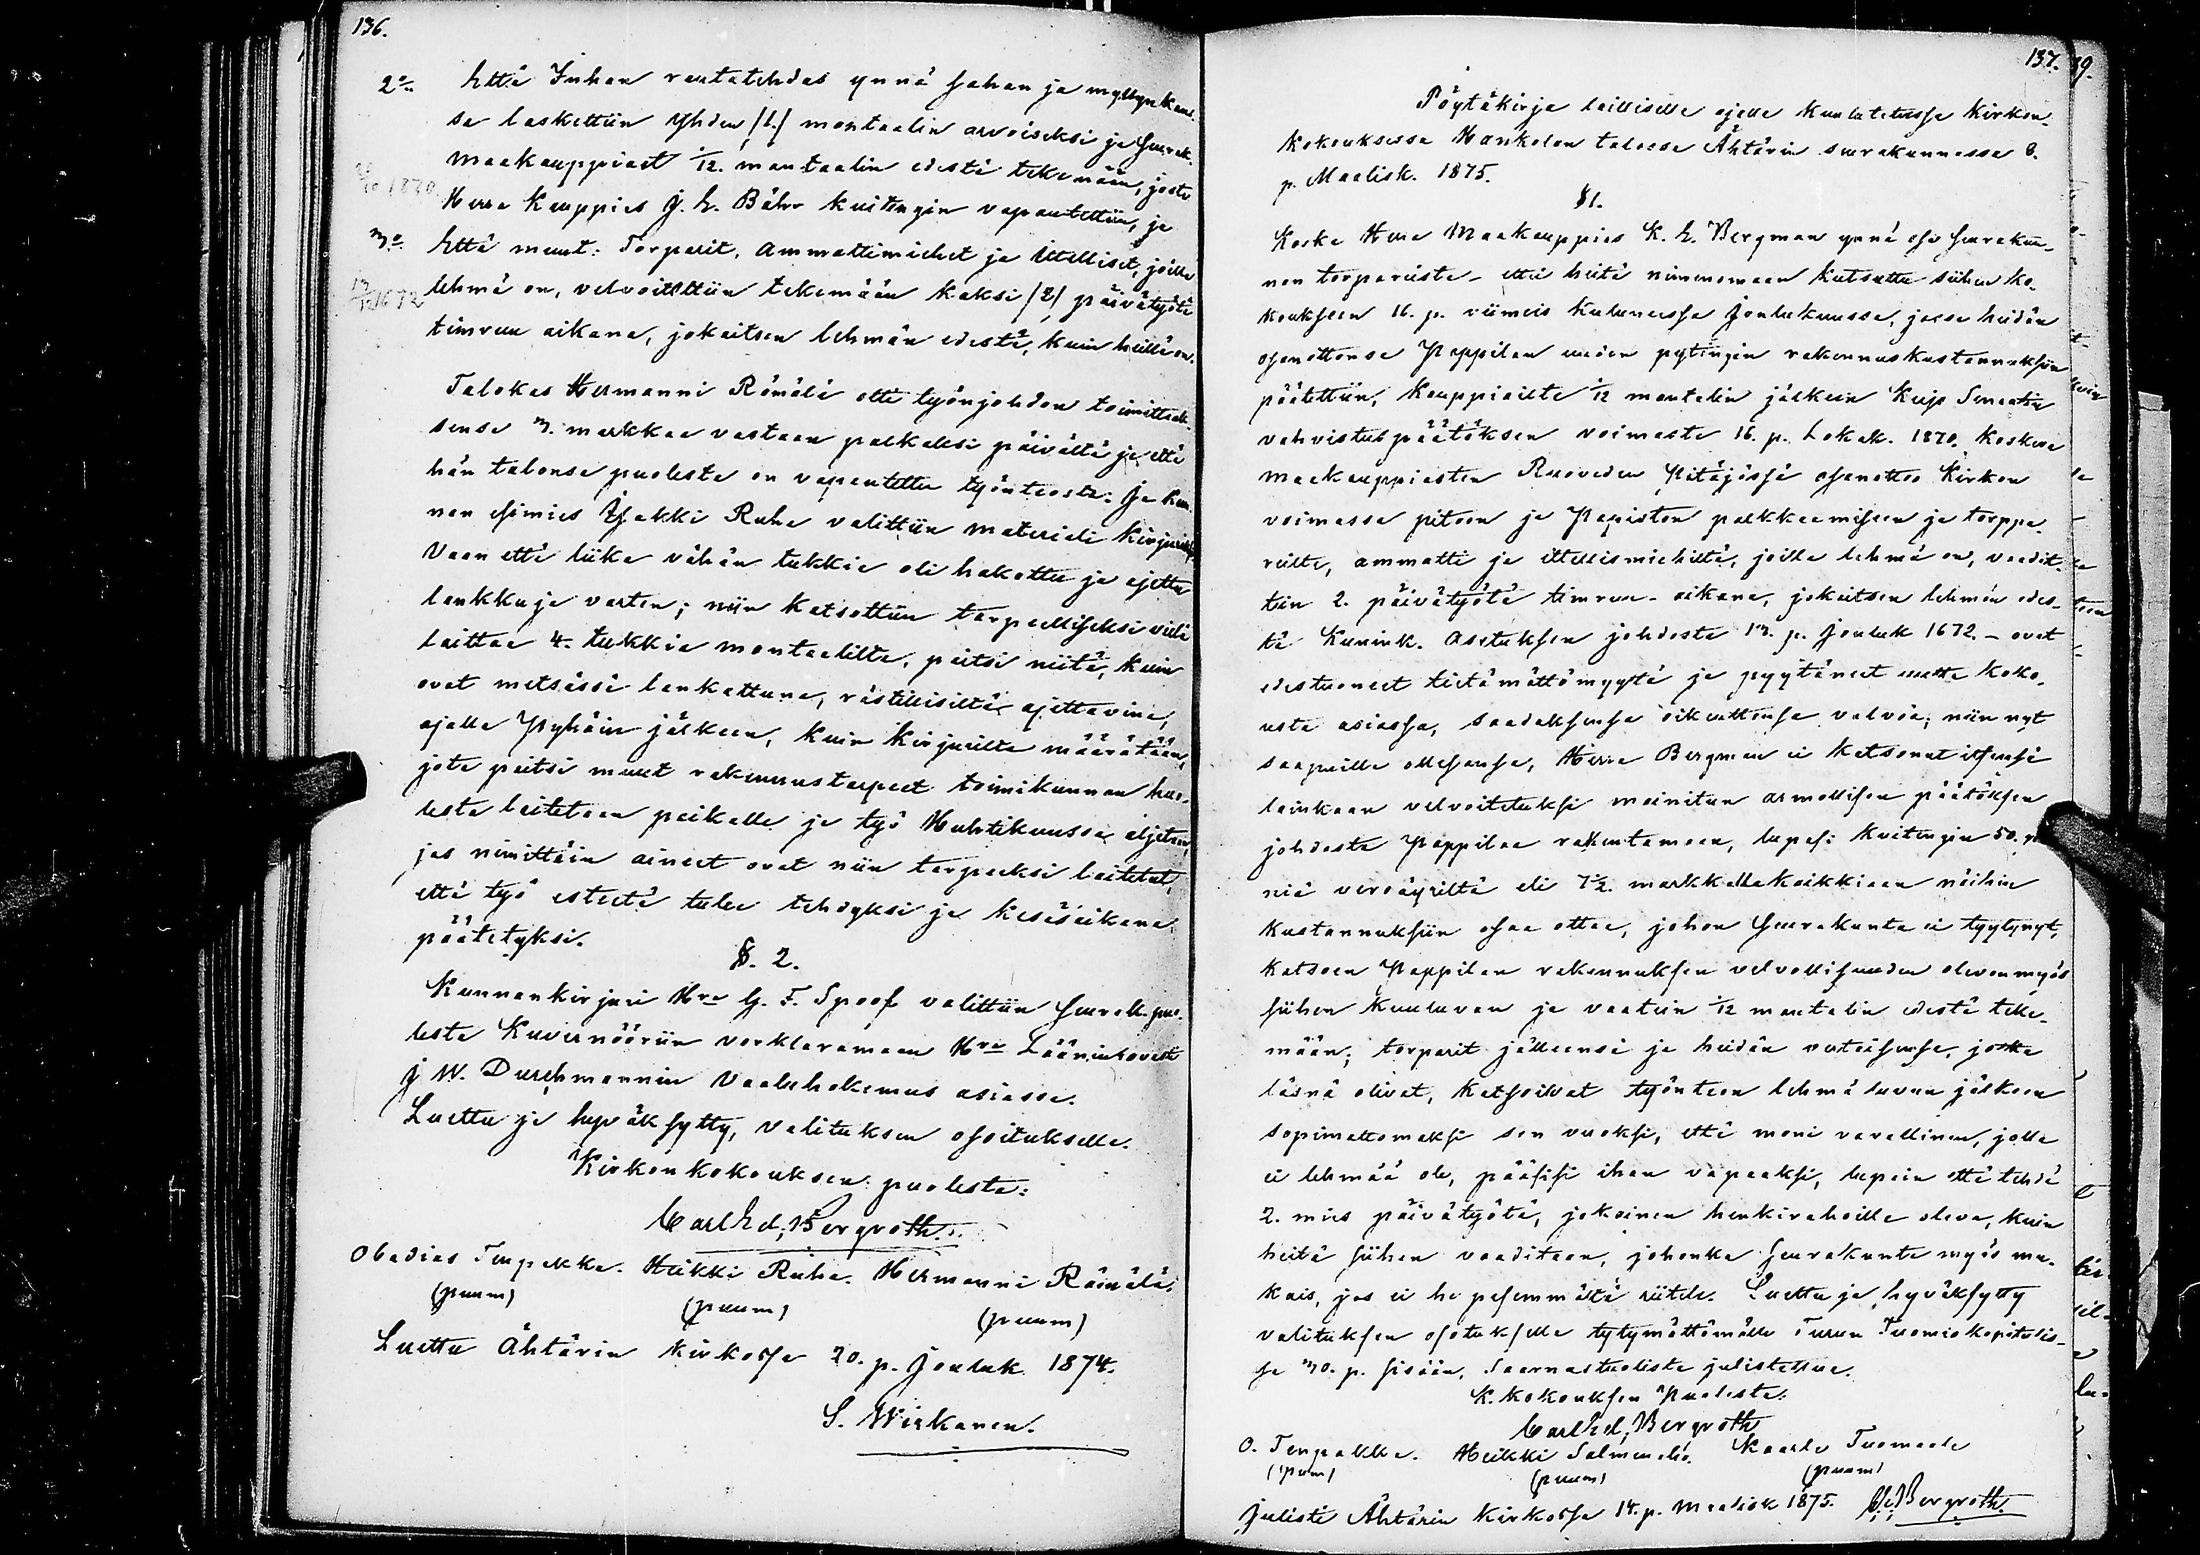 136.
2o Että Inhan rautatehdas ynnä sahan ja myllyn kans-
sa laskettiin yhden /1/ mantaalin arvoiseksi ja Seurak.
maakauppiaat 1/12. mantaalin edestä tekemään, josta
Herra Kauppias J. E. Bähr kuitengin vapautettiin, ja
3o Että muut: Torparit, Ammattimiehet ja Itselliset, joilla
lehmä on, velvoitettiin tekemään kaksi /2/ päivätyötä
timrun aikana, jokaitsen lehmän edestä, kuin heillä on.
1870.
1672
Talokas Hermanni Rämälä otti työnjohdon toimittaak-
sensa 3. markkaa vastaan palkaksi päivältä ja että
hän talonsa puolesta on vapautettu työnteosta: Ja kun-
nan esimies Heikki Ruha valittiin materiali kirjuriksi.
Vaan että liika vähän tukkia oli hakattu ja ajettu
lankkuja varten; niin katsottiin tarpeelliseksi vielä
laittaa 4. tukkia mantaalilta, paitsi niitä, kuin
ovat metsässä lankattuna, rästiläisiltä ajettavina,
ajalla Pyhäin jälkeen, kuin kirjurilta määrätään,
jota paitsi muut rakennustarpeet toimikunnan huo-
lesta laitetaan paikalle ja työ Huhtikuussa aljetaan,
jas nimittäin aineet ovat niin tarpeeksi laitetut,
että työ esteetä tulee tehdyksi ja kesäsaikana
päätetyksi.
§. 2.
Kunnankirjuri Hra G. F. Spoof valittiin Seurak. puo-
lesta Kuvernööriin vorklaramaan Hra Lääninhovest
J W. Durchmannin Vaaluhakemus asiassa.
Luettu ja hyväksytty, valituksen osoituksella.
Kirkonkokouksen puolesta:
Carl Ed. Bergroth.
Obadias Tenpakka. Heikki Ruha. Hermanni Rämälä.
(puum) (puum) (puum)
Luettu Ähtärin kirkossa 20. p. Jouluk 1874.
S. Wirkanen.
137.
Pöytäkirja laillisella ajalla kuulutetussa Kirkon-
kokouksessa Hankolan talossa Ähtärin seurakunnassa 8.
p. Maalisk. 1875.
§1.
Koska Herra Maakauppias K. E. Bergman ynnä osa seurakun-
nan torpareista - ettei heitä nimenomaan kutsuttu siihen ko-
koukseen 16. p. viimeis kuluneessa Joulukuussa, jossa heidän
osanottonsa Pappilan uuden pytingin rakennuskustannuksiin
päätettiin, kauppiailta 1/12 mantalin jälkeen Keis Senaatin
vahvistuspäätöksen voimasta 16. p. Lokak. 1870. koskeva
maakauppiasten Ruoveden Pitäjässä osanottoo Kirkon
voimassa pitoon ja Papiston palkkaamiseen ja torppa-
reilta, ammatti ja itsellismiehiltä, joilla lehmä on, vaadit-
tiin 2. päivätyötä timrun- aikana, jokaitsen lehmän edes-
tä Kunink. Asetuksen johdosta 13. p. Jouluk 1672. - ovat
edestuoneet tietämättömyytä ja pyytäneet uutta koko-
usta asiassa, saadaksensa oikeuttensa valvoa; niin nyt
saapuilla ollesansa, Herra Bergman ei katsonut itsensä
lainkaan velvoitetuksi mainitun armollisen päätöksen
johdosta Pappilaa rakentamaan, lupasi kuitengin 50.
niä veroäyriltä eli 7 1/2. markkalla kaikkiaan näihin
kustannuksiin osaa ottaa, johon seurakunta ei tyytynyt,
katsoen Pappilan rakennuksen velvollisuuden olevan myös
siihen kuuluvan ja vaatein 1/12 mantalin edestä teke-
mään; torparit jälleensä ja heidän vertaisensa, jotka
läsnä olivat, katsoivat työnteon lehmä luvun jälkeen
sopimattomaksi sen vuoksi, että moni varallinen, jolla
ei lehmää ole, pääsisi ihan vapaaksi, lupain että tehdä
2. mies päivätyötä, jokainen henkirahoilla oleva, kuin
heitä siihen vaaditaan, johonka seurakunta myös mu-
kais, jos ei he pesemmältä riitele. Luettu ja hyväksytty
valituksen osotuksella tytymättömälle Turun Tuomiokapitulis-
sa 30. p. sisään, Saarnastuolista julistettua.
K. kokouksen Puolesta:
Carl Ed. Bergroth
O. Tenpakka. Heikki Salmenchä. Kaarlo Tuomaala
(puum) (puum) (puum)
Julisti Ähtärin kirkossa 14. p. Maalisk 1875. Bergroth.